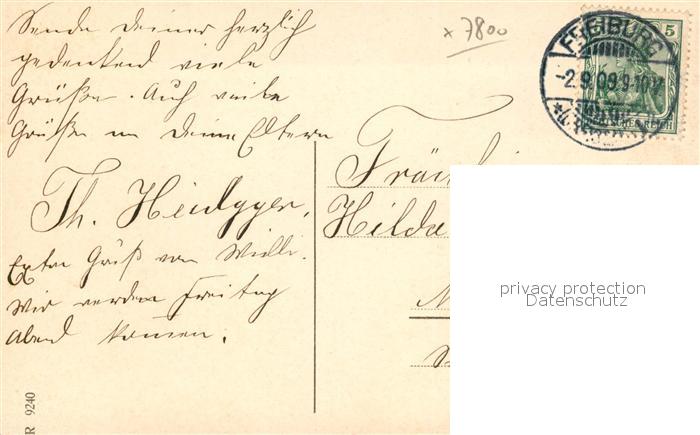 Sende deiner herzlich
gedenkend viele
Grüße. Auch viele
Grüße an deine Eltern
Th. Heidegger.
Extra Gruß von Willi.
Wir werden Freitag
Abend kommen.
x 7800
FREIBURG
-2.9.09.9-10V.
5
REICH
Fräulein
Hilda
privacy protection
Datenschutz
R 9240